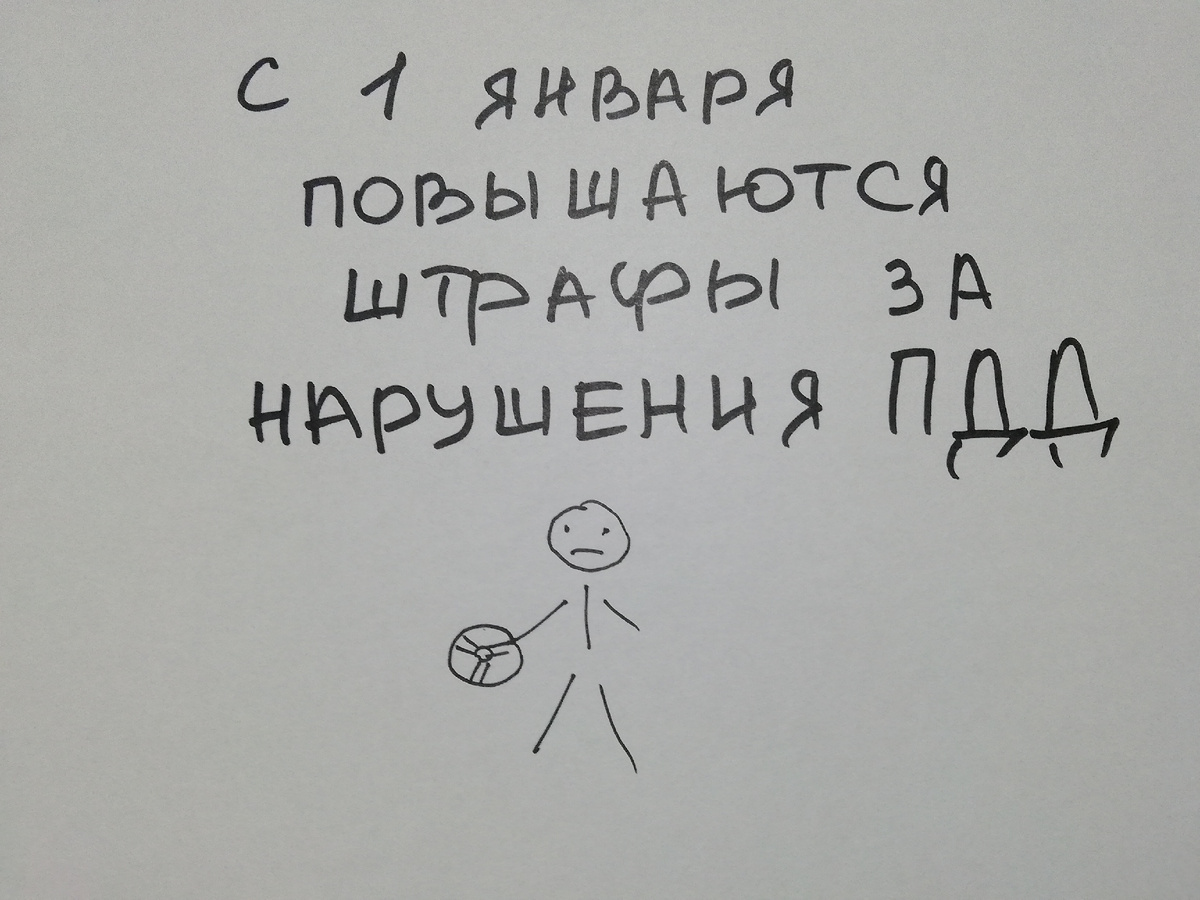 С 1 ЯНВАРЯ
ПОВЫШАЮТСЯ
ШТРАФЫ ЗА
НАРУШЕНИЯ ПДД